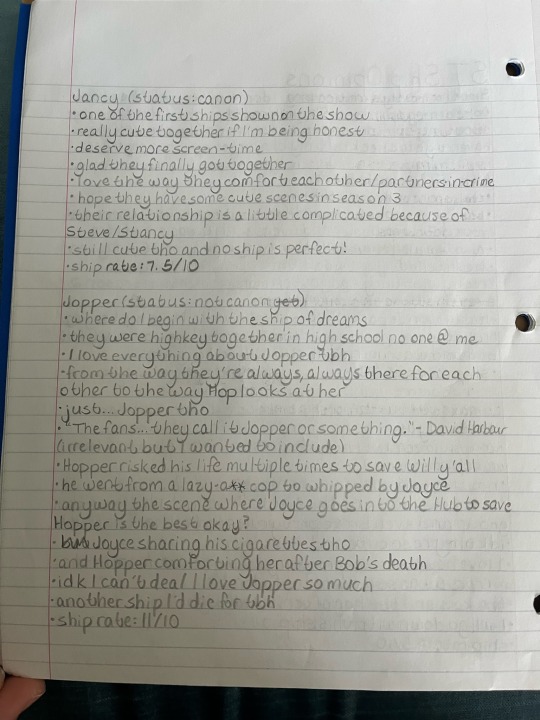 Jancy (status: canon)
• one of the first ships shown on the show
• really cute together if I'm being honest
• deserve more screen-time
• glad they finally got together
• love the way they comfort each other/partners in crime
• hope they have some cute scenes in season 3
• their relationship is a little complicated because of
Steve/Stancy
• still cute tho and no ship is perfect!
• ship rate: 7.5/10
Jopper (status: not canon yet)
• where do I begin with the ship of dreams
• they were highkey together in high school no one @ me
• I love everything about Jopper tbh
• from the way they're always, always there for each
other to the way Hop looks at her
• just... Jopper tho
• "The fans... they call it Jopper or something." - David Harbour
(irrelevant but I wanted to include)
• Hopper risked his life multiple times to save Will y'all
• he went from a lazy-a** cop to whipped by Joyce
• anyway the scene where Joyce goes into the Hub to save
Hopper is the best okay?
• Joyce sharing his cigarettes tho
• and Hopper comforting her after Bob's death
• idk I can't deal I love Jopper so much
• another ship I'd die for tbh
• ship rate: 11/10